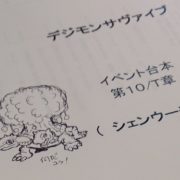 デジモンサヴァイブ
イベント台本
第10/T章
( シェンウー